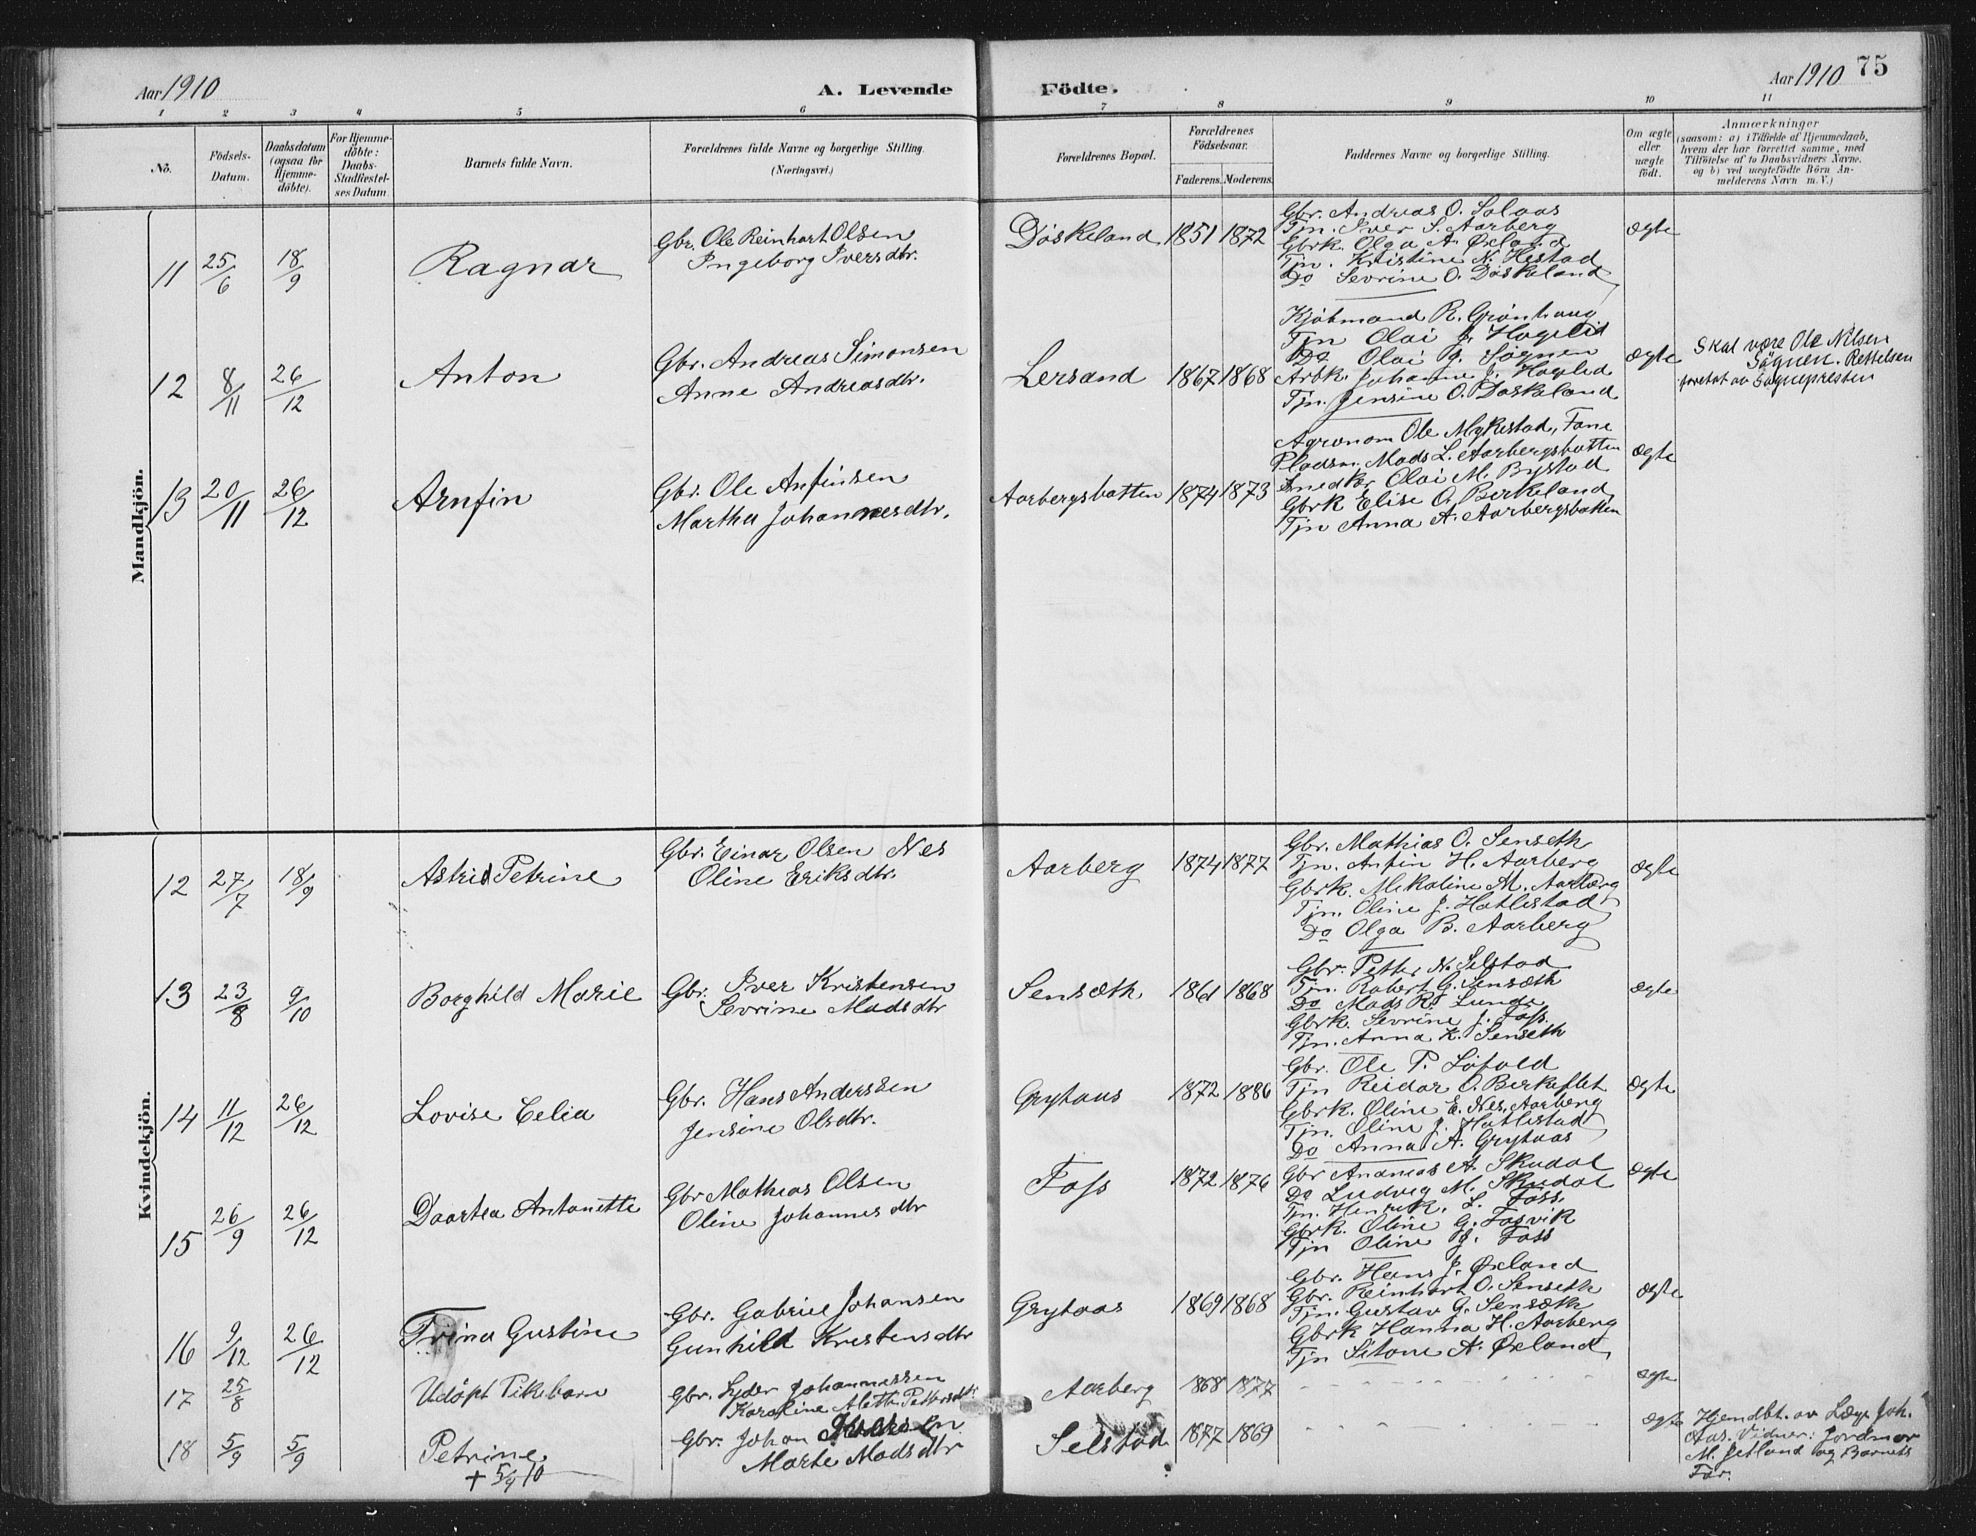 Aar 1910
A. Levende Födte.
Aar 1910 75
1 2 3 4 5 6 7 8 9 10 11
No.
Födsels-Datum.
Daabsdatum (ogsaa for Hjemme-döbte).
For Hjemme-döbte: Daabs-Stadfæstel-ses Datum.
Barnets fulde Navn.
Forældrenes fulde Navne og borgerlige Stilling.
(Næringsvei.)
Forældrenes Bopæl.
Forældrenes Födselsaar.
Faderens. Moderens.
Faddernes Navne og borgerlige Stilling.
Om ægte eller uægte födt.
Anmærkninger
(saasom: a) i Tilfælde af Hjemmedaab,
hvem der har forrettet samme, med
Tilföielse af to Daabsvidners Navne.
og b) ved uægtefödte Börn An-
melderens Navn m. V.)
Mandkjön.
11 25/6 18/9 Ragnar
Gbr. Ole Reinhart Olsen
Ingeborg Iversdtr.
Döskeland 1851 1872
Gbr. Andreas O. Solaas
Tjn. Iver S. Aarberg
Gbrk. Olga A. Øxland
Tjn. Kristine N. Hestad
Do Sevrine O. Döskeland
ægte
12 8/11 26/12 Anton
Gbr. Andreas Simonsen
Anne Andreasdtr.
Lersand 1867 1868
Kjöbmand R. Grönhaug
Tjn Olai J. Hoglid
Do Olai Sögnen
Arbk. Johanne J. Hoglid
Tjn. Jensine O. Döskeland
ægte
Skal være Ole Nilsen
Sögnen. Rettelsen
foretat av Sognepresten
13 20/11 26/12 Arnfin
Gbr. Ole Anfinsen
Martha Johannesdtr.
Aarbergsbotten 1874 1873
Agronom Ole Mykestad, Fane
Pladsm. Mads L. Aarbergsbotten
Snedker Olai M. Bystad
Gbrk Elise O. Birkeland
Tjn Anna A. Aarbergsbotten
ægte
Kvindekjön.
12 27/7 18/9 Astrid Petrine
Gbr. Einar Olsen Nes
Oline Eriksdtr.
Aarberg 1874 1877
Gbr. Mathias O. Senseth
Tjn. Anfin H. Aarberg
Gbrk. Mikaline M. Aarberg
Tjn. Oline J. Hatlestad
Do Olga B. Aarberg
ægte
13 23/8 9/10 Borghild Marie
Gbr. Iver Kristensen
Sevrine Madsdtr
Sensæth 1861 1868
Gbr. Petter N. Selstad
Tjn. Robert G. Sensæth
Do Mads R. Lunde
Gbrk. Sevrine J. Foss.
Tjn. Anna K. Senseth
ægte
14 11/12 26/12 Lovise Celia
Gbr. Hans Anderssen
Jensine Olsdtr.
Grytaas 1872 1886
Gbr. Ole P. Löfald
Tjn Reidar O. Birkeflet
Gbrk. Oline E. Nes, Aarberg
Tjn. Oline J. Hatlestad
Do Anna A. Grytaas
ægte
15 26/9 26/12 Daartea Antonette
Gbr Mathias Olsen
Oline Johannesdtr
Foss 1872 1876
Gbr Andreas A. Skudal
Do Ludvig M. Skudal
Tjn. Henrik. L. Foss.
Gbrk. Oline G. Fosvik
Tjn Oline J. Foss
ægte
16 9/12 26/12 Trina Gustine
Gbr. Gabriel Johansen
Gunhild Kristensdtr
Grytaas 1869 1868
Gbr. Hans J. Øxland
Gbr. Reinhart O. Senseth
Tjn. Gustav G. Sensæth
Gbrk Hanna H. Aarberg
Tjn Sitone A. Øxland
ægte
17 25/8 Udöpt Pikebarn
Gbr. Lyder Johannessen
Karoline Alette Pettersdtr
Aarberg 1868 1877
ægte
18 5/9 5/9 Petrine
+ 5/9 10
Gbr. Johan
Marte Madsdtr
Selstad 1877 1869
ægte
Hjemdbt. av Læge Joh.
Aas. Vidner: Jordmor
M. Jetland og Barnets
Far.